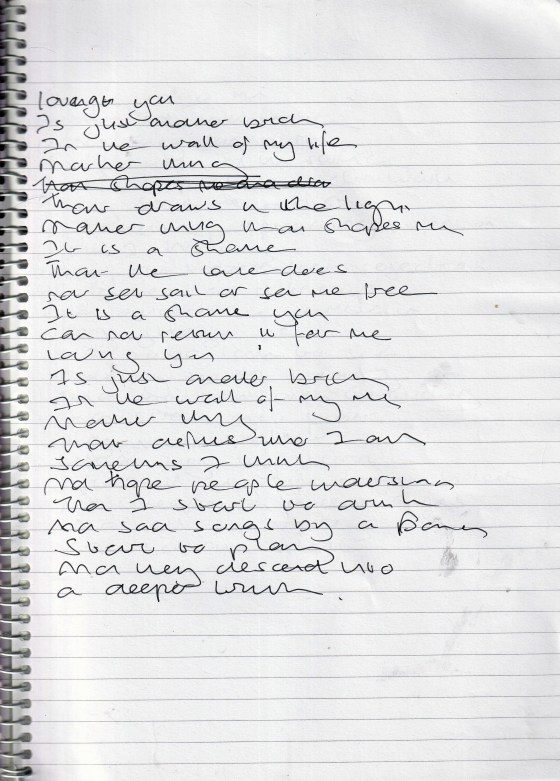 loving you
Is just another brick
In the wall of my life
Another thing
that shapes me and dra
that draws in the light
Another thing that shapes me
It is a shame
That the love does
not set sail or set me free
It is a shame you
can not return it for me
loving you
Is just another brick
In the wall of my
Another thing
that defines who I am
Sometimes I think
No hope people understand
that I start to drink
And sad songs by a
Start to play
And they descend into
a deeper